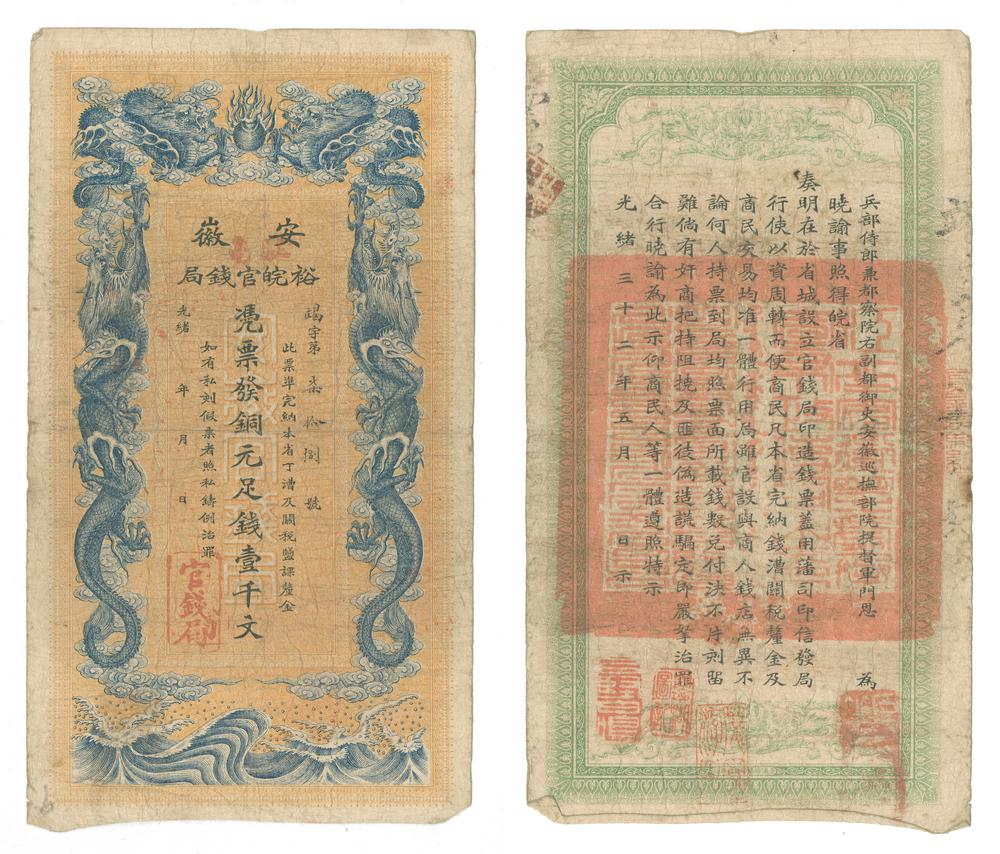 安徽
裕皖官錢局
竭字第柒拾捌號
此票準完納本省丁漕及關稅鹽課釐金
憑票發銅元足錢壹千文
如有私刻假票者照私鑄例治罪
光緒 年 月 日
官錢局
兵部侍郎兼都察院右副都御史安徽巡撫部院提督軍門恩 為
曉諭事照得皖省
奏明在於省城設立官錢局印造錢票蓋用藩司印信發局
行使以資周轉而便商民凡本省完納錢漕關稅釐金及
商民交易均准一體行用局雖官設與商人錢店無異不
論何人持票到局均照票面所載錢數兌付決不片刻留
難倘有奸商把持阻撓及匪徒偽造謊騙定即嚴拏治罪
合行曉諭為此示仰商民人等一體遵照特示
光緒三十二年五月 日示